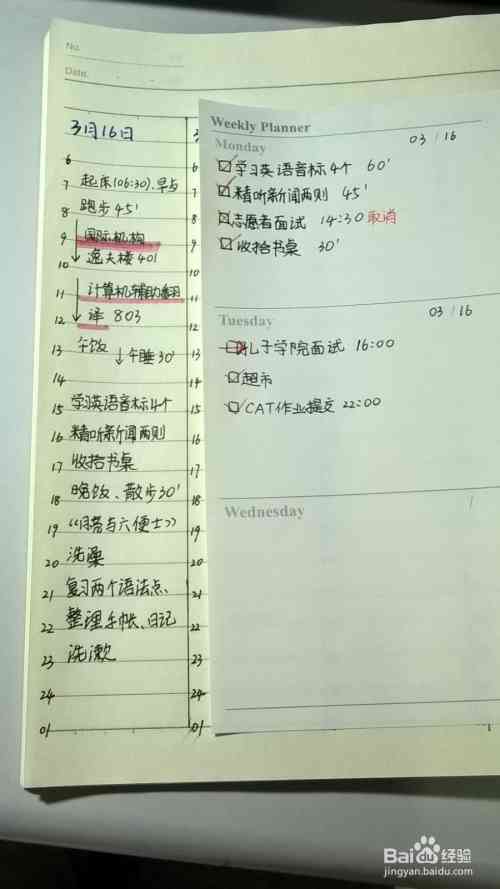 No.
Date.
3月16日
6
7 起床(06:30).早点
8 跑步45'
9 国际机构
10 逸夫楼401
11 计算机辅助翻
12 译 803
13 午饭 午睡30'
14
15 学习英语音标4个
16 精听新闻两则
17 收拾书桌
18 晚饭、散步30'
19 《月亮与六便士》
20 洗澡
21 复习两个语法点
22 整理手帐、日记
23 洗漱
24
01
6
7
8
9
10
11
12
13
14
15
16
17
18
19
20
21
22
23
24
01
Weekly Planner
03/16
Monday
学习英语音标4个 60'
精听新闻两则 45'
志愿者面试 14:30 取消
收拾书桌 30'
03/16
Tuesday
孔子学院面试 16:00
超市
CAT作业提交 22:00
Wednesday
/
Baidu经验
jingyan.baidu.com